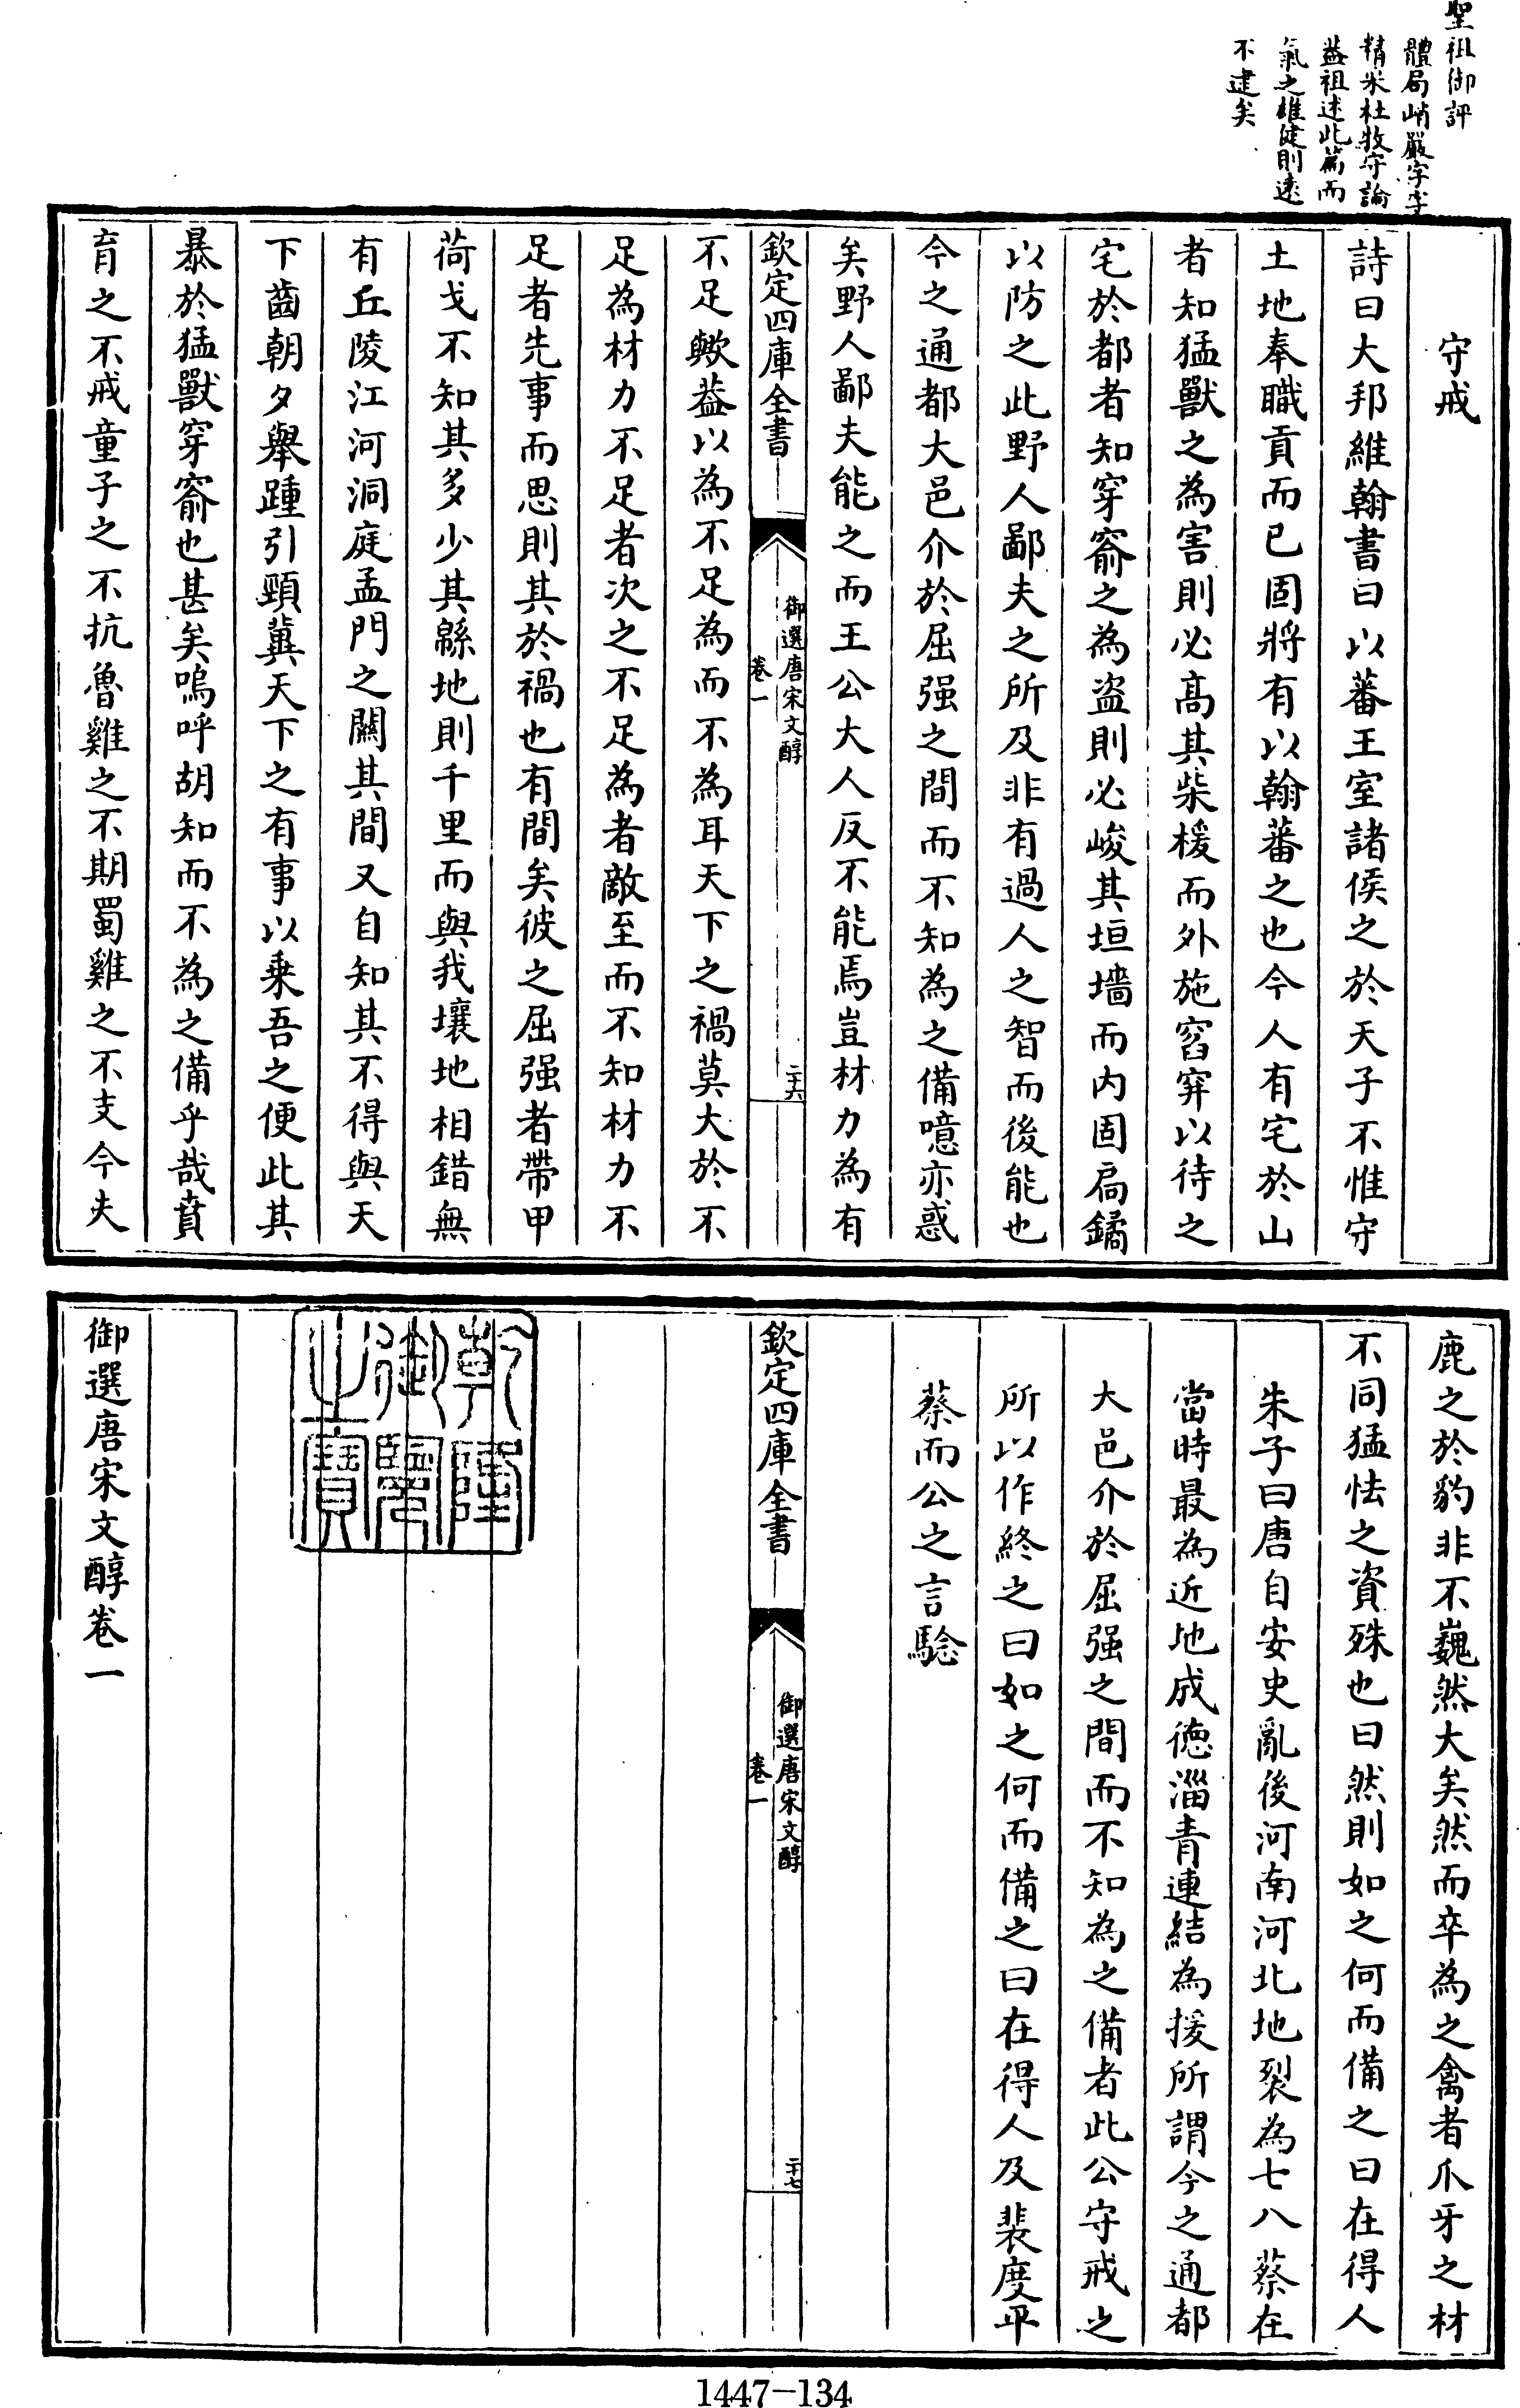 聖祖御評
體局峭嚴字字
精米杜牧守論
葢祖述此篇而
氣之雄健則遠
不逮矣
守戒
詩曰大邦維翰書曰以蕃王室諸侯之於天子不惟守
土地奉職貢而已固將有以翰蕃之也今人有宅於山
者知猛獸之為害則必髙其柴楥而外施窞穽以待之
宅於都者知穿窬之為盜則必峻其垣墻而内固扃鐍
以防之此野人鄙夫之所及非有過人之智而後能也
今之通都大邑介於屈强之間而不知為之備噫亦惑
矣野人鄙夫能之而王公大人反不能焉豈材力為有
欽定四庫全書
御選唐宋文醇
卷一
二十六
不足歟葢以為不足為而不為耳天下之禍莫大於不
足為材力不足者次之不足為者敵至而不知材力不
足者先事而思則其於禍也有間矣彼之屈强者帶甲
荷戈不知其多少其緜地則千里而與我壤地相錯無
有丘陵江河洞庭孟門之關其間又自知其不得與天
下齒朝夕舉踵引頸冀天下之有事以乗吾之便此其
暴於猛獸穿窬也甚矣嗚呼胡知而不為之備乎哉賁
育之不戒童子之不抗魯雞之不期蜀雞之不支今夫
鹿之於豹非不巍然大矣然而卒為之禽者爪牙之材
不同猛怯之資殊也曰然則如之何而備之曰在得人
朱子曰唐自安史亂後河南河北地裂為七八蔡在
當時最為近地成徳淄青連結為援所謂今之通都
大邑介於屈强之間而不知為之備者此公守戒之
所以作終之曰如之何而備之曰在得人及裴度平
蔡而公之言驗
欽定四庫全書
御選唐宋文醇
卷一
二十七
乾隆
御覽
之寶
御選唐宋文醇卷一
1447-134